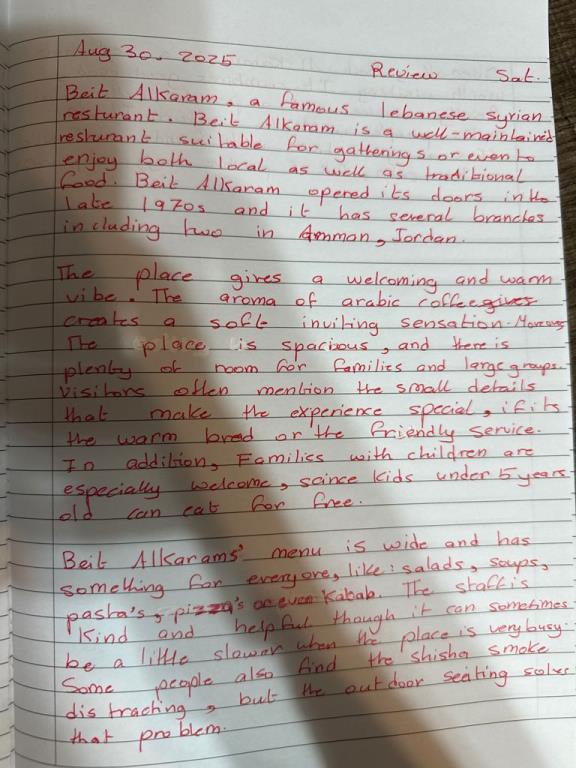 Aug 30. 2025 Review Sat.
Beit Alkaram, a famous lebanese syrian
resturant. Beit Alkaram is a well-maintained
resturant suitable for gatherings or even to
enjoy both local as well as traditional
food. Beit Alkaram opened its doors in the
late 1970s and it has several branches
including two in Amman, Jordan.
The place gives a welcoming and warm
vibe. The aroma of arabic coffee gives
creates a soft inviting sensation. Moreover
The place is spacious, and there is
plenty of room for families and large groups.
Visitors often mention the small details
that make the experience special, if its
the warm bread or the friendly service.
In addition, Families with children are
especially welcome, scince kids under 5 years
old can eat for free.
Beit Alkarams' menu is wide and has
something for everyone, like: salads, soups,
pasta's, pizza's or even Kabab. The staff is
Kind and helpful though it can sometimes
be a little slower when the place is very busy.
Some people also find the shisha smoke
distracting, but the outdoor seating solves
that problem.